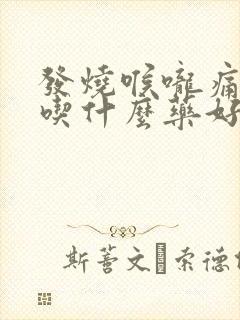 發燒喉嚨痛
喫什麼藥好
斯蓍文 索德